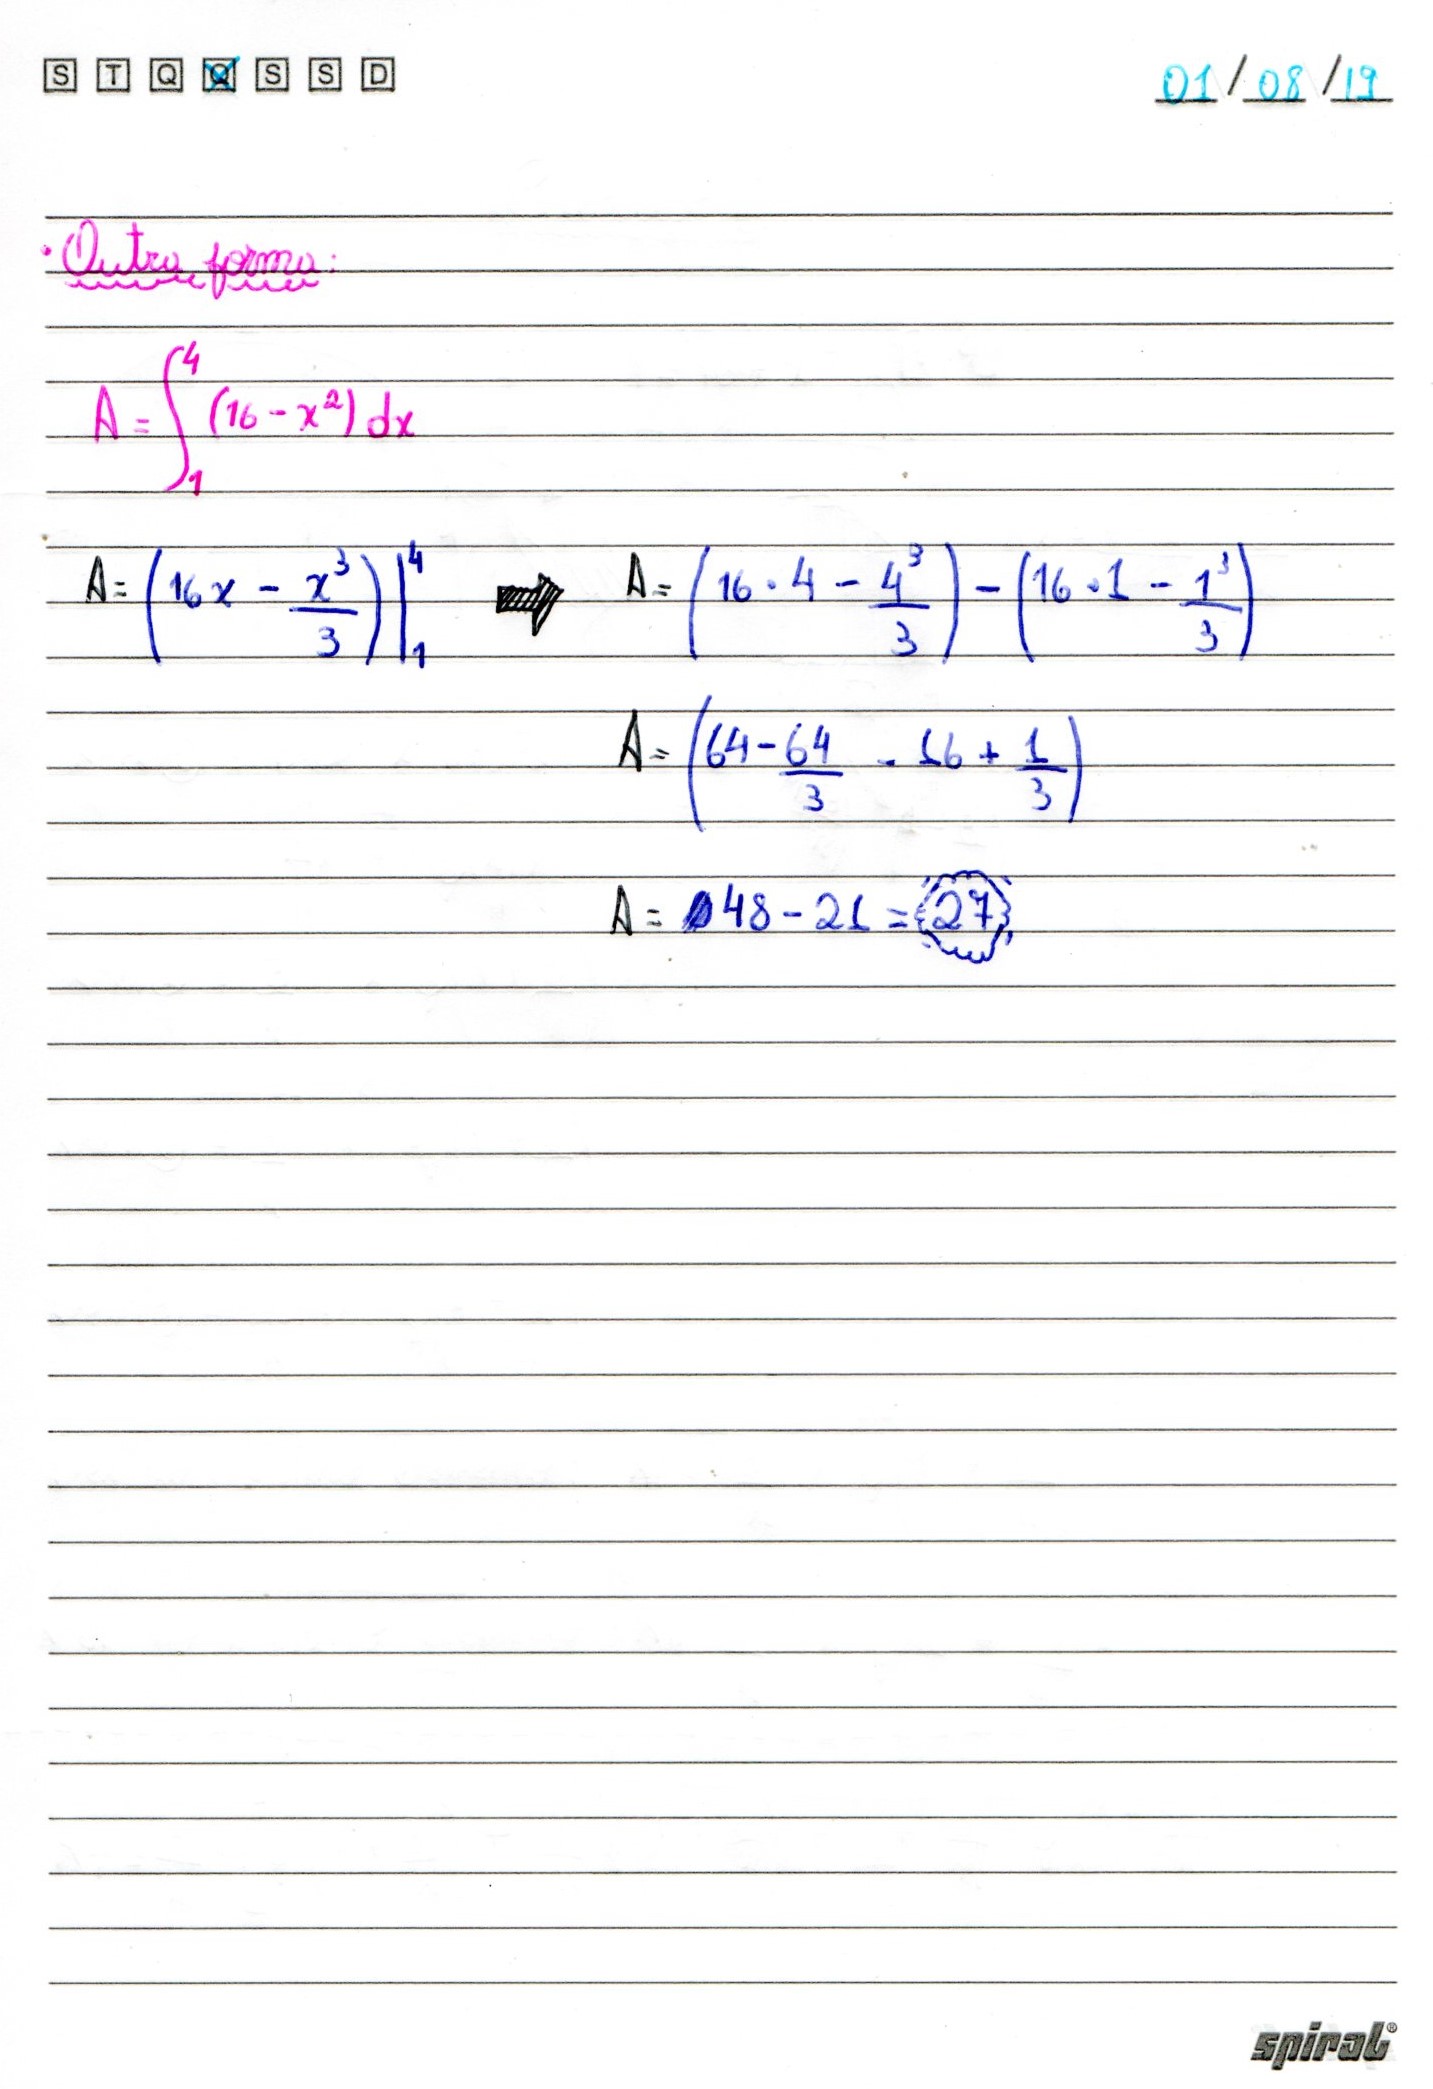 S T Q Q S S D 01/08/19
• Outra forma:
A = ∫₁⁴ (16 - x²) dx
A = (16x - x³/3)|₁⁴ ➡ A = (16 · 4 - 4³/3) - (16 · 1 - 1³/3)
A = (64 - 64/3 - 16 + 1/3)
A = 48 - 21 = 27
spiral®